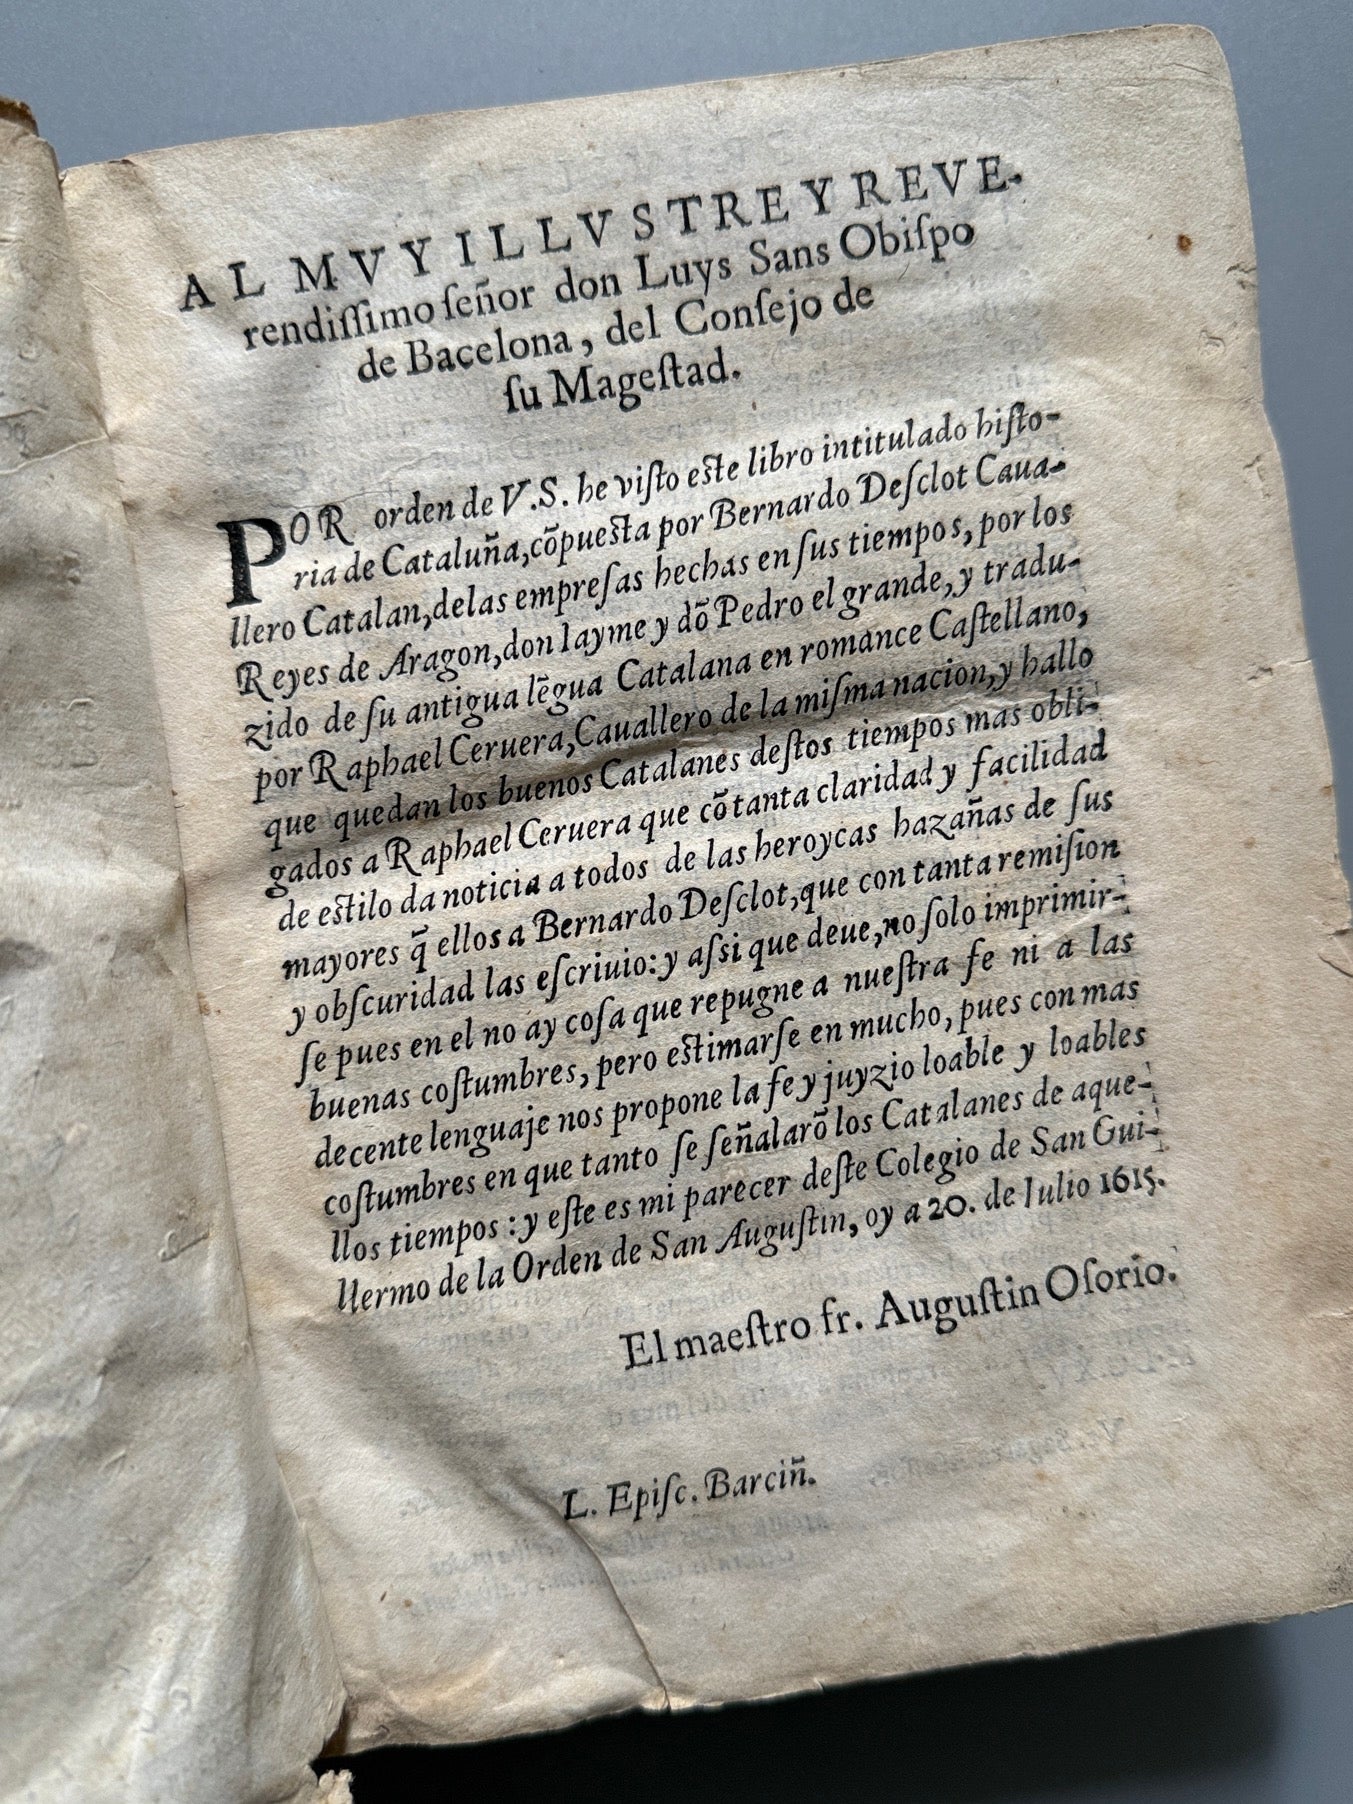 AL MVY ILLVSTRE Y REVE-
rendiſſimo ſeñor don Luys Sans Obiſpo
de Bacelona, del Conſejo de
ſu Mageſtad.
POR orden de V.S. he viſto eſte libro intitulado hiſto-
ria de Cataluña, cõpueſta por Bernardo Deſclot Caua-
llero Catalan, de las empreſas hechas en ſus tiempos, por los
Reyes de Aragon, don Iayme y dõ Pedro el grande, y tradu-
zido de ſu antigua lẽgua Catalana en romance Caſtellano,
por Raphael Ceruera, Cauallero de la miſma nacion, y hallo
que quedan los buenos Catalanes deſtos tiempos mas obli-
gados a Raphael Ceruera que cõ tanta claridad y facilidad
de eſtilo da noticia a todos de las heroycas hazañas de ſus
mayores q̃ ellos a Bernardo Deſclot, que con tanta remiſion
y obſcuridad las eſcriuio: y aſsi que deue, no ſolo imprimir-
ſe pues en el no ay coſa que repugne a nueſtra fe ni a las
buenas coſtumbres, pero eſtimarſe en mucho, pues con mas
decente lenguaje nos propone la fe y juyzio loable y loables
coſtumbres en que tanto ſe ſeñalarõ los Catalanes de aque-
llos tiempos: y eſte es mi parecer deſte Colegio de San Gui-
llermo de la Orden de San Auguſtin, oy a 20. de Iulio 1615.
El maeſtro fr. Auguſtin Oſorio.
L. Epiſc. Barciñ.